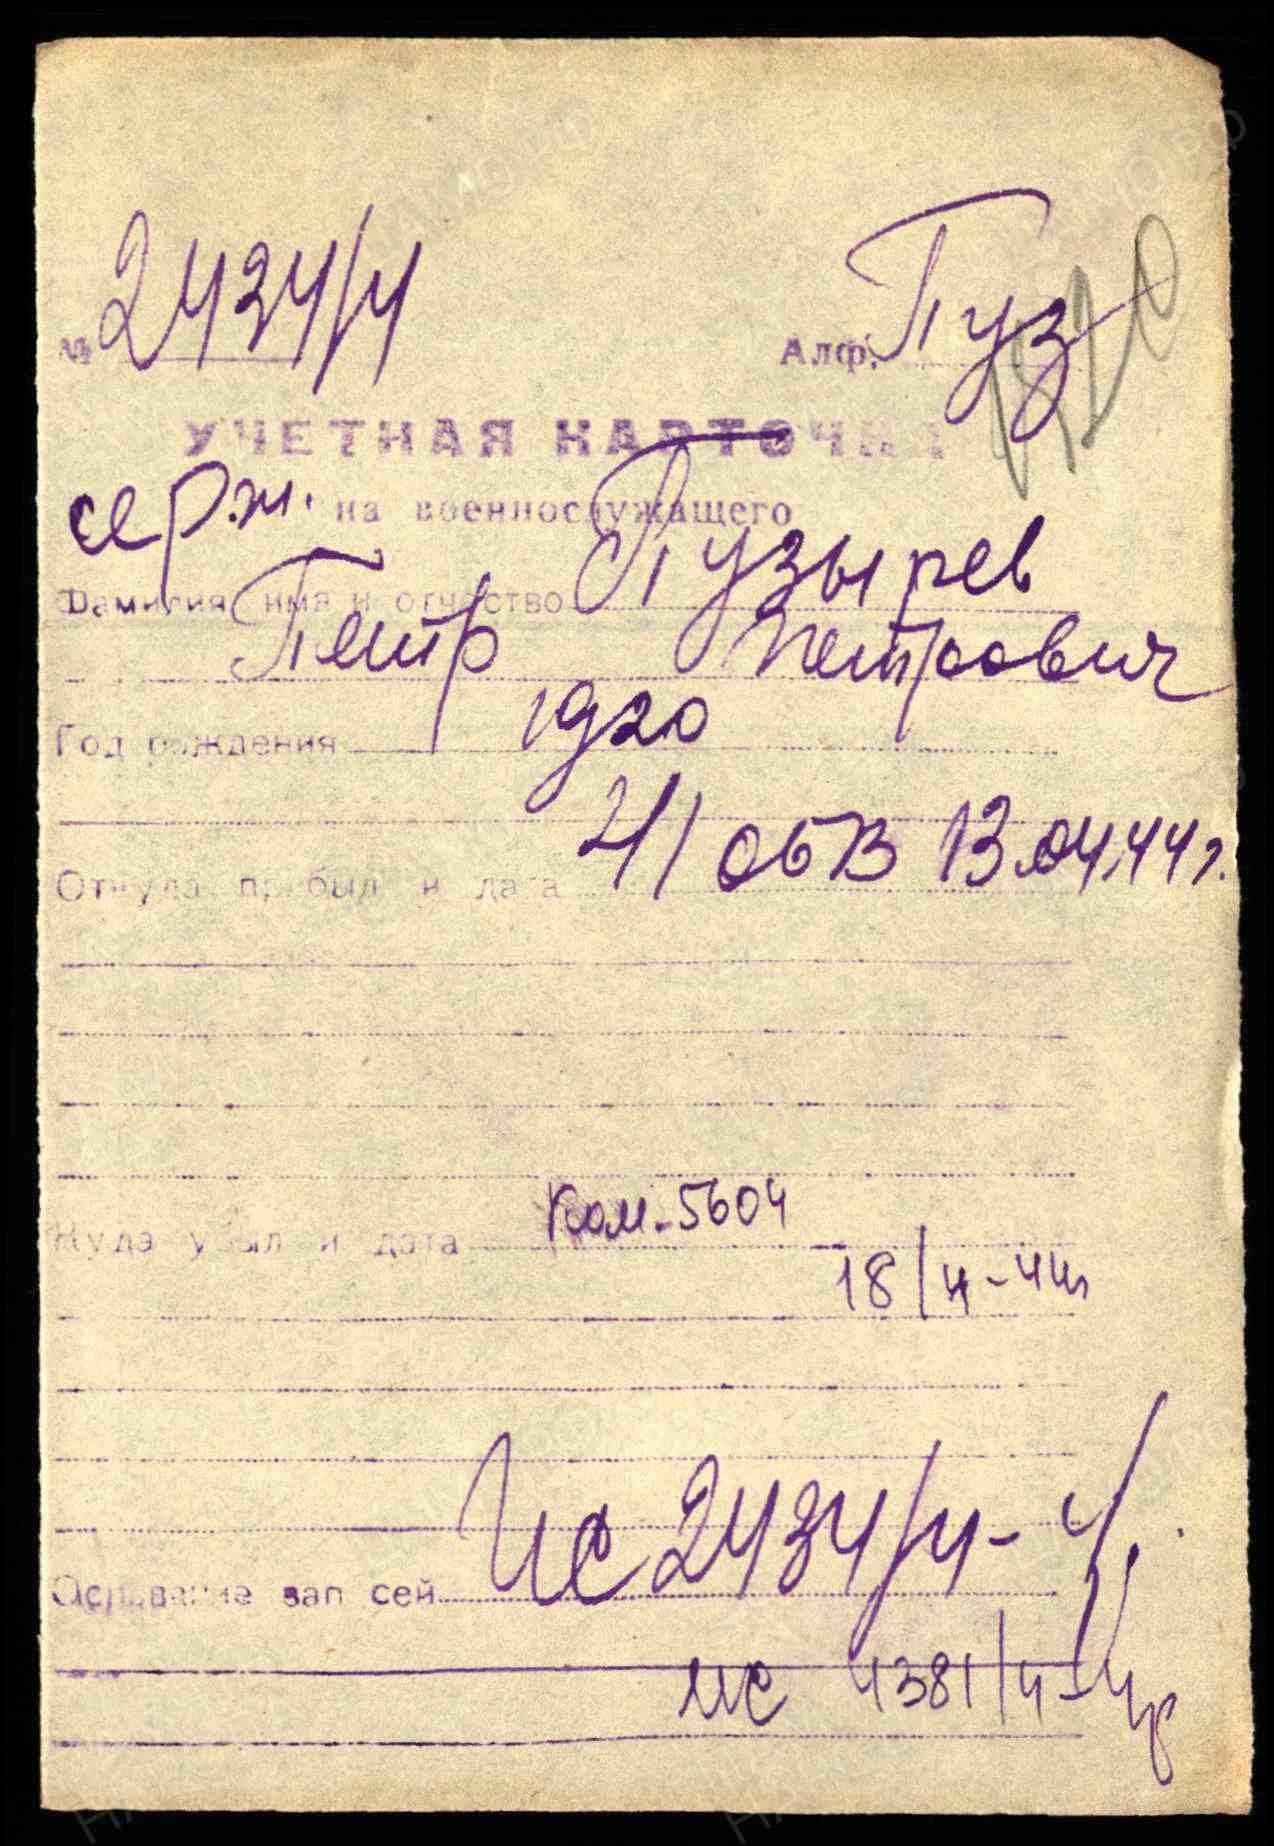 № 2434/4
Алф. Пуз
1920
УЧЕТНАЯ КАРТОЧКА
серж. на военнослужащего
Фамилия имя и отчество Пузырев
Петр Петрович
Год рождения 1920
Откуда прибыл и дата 41 ОБВ 13.04.44г.
Куда убыл и дата Ком. 5604
18/4-44г
Основание записей ИС 2434/4-4
ис 4381/4-4